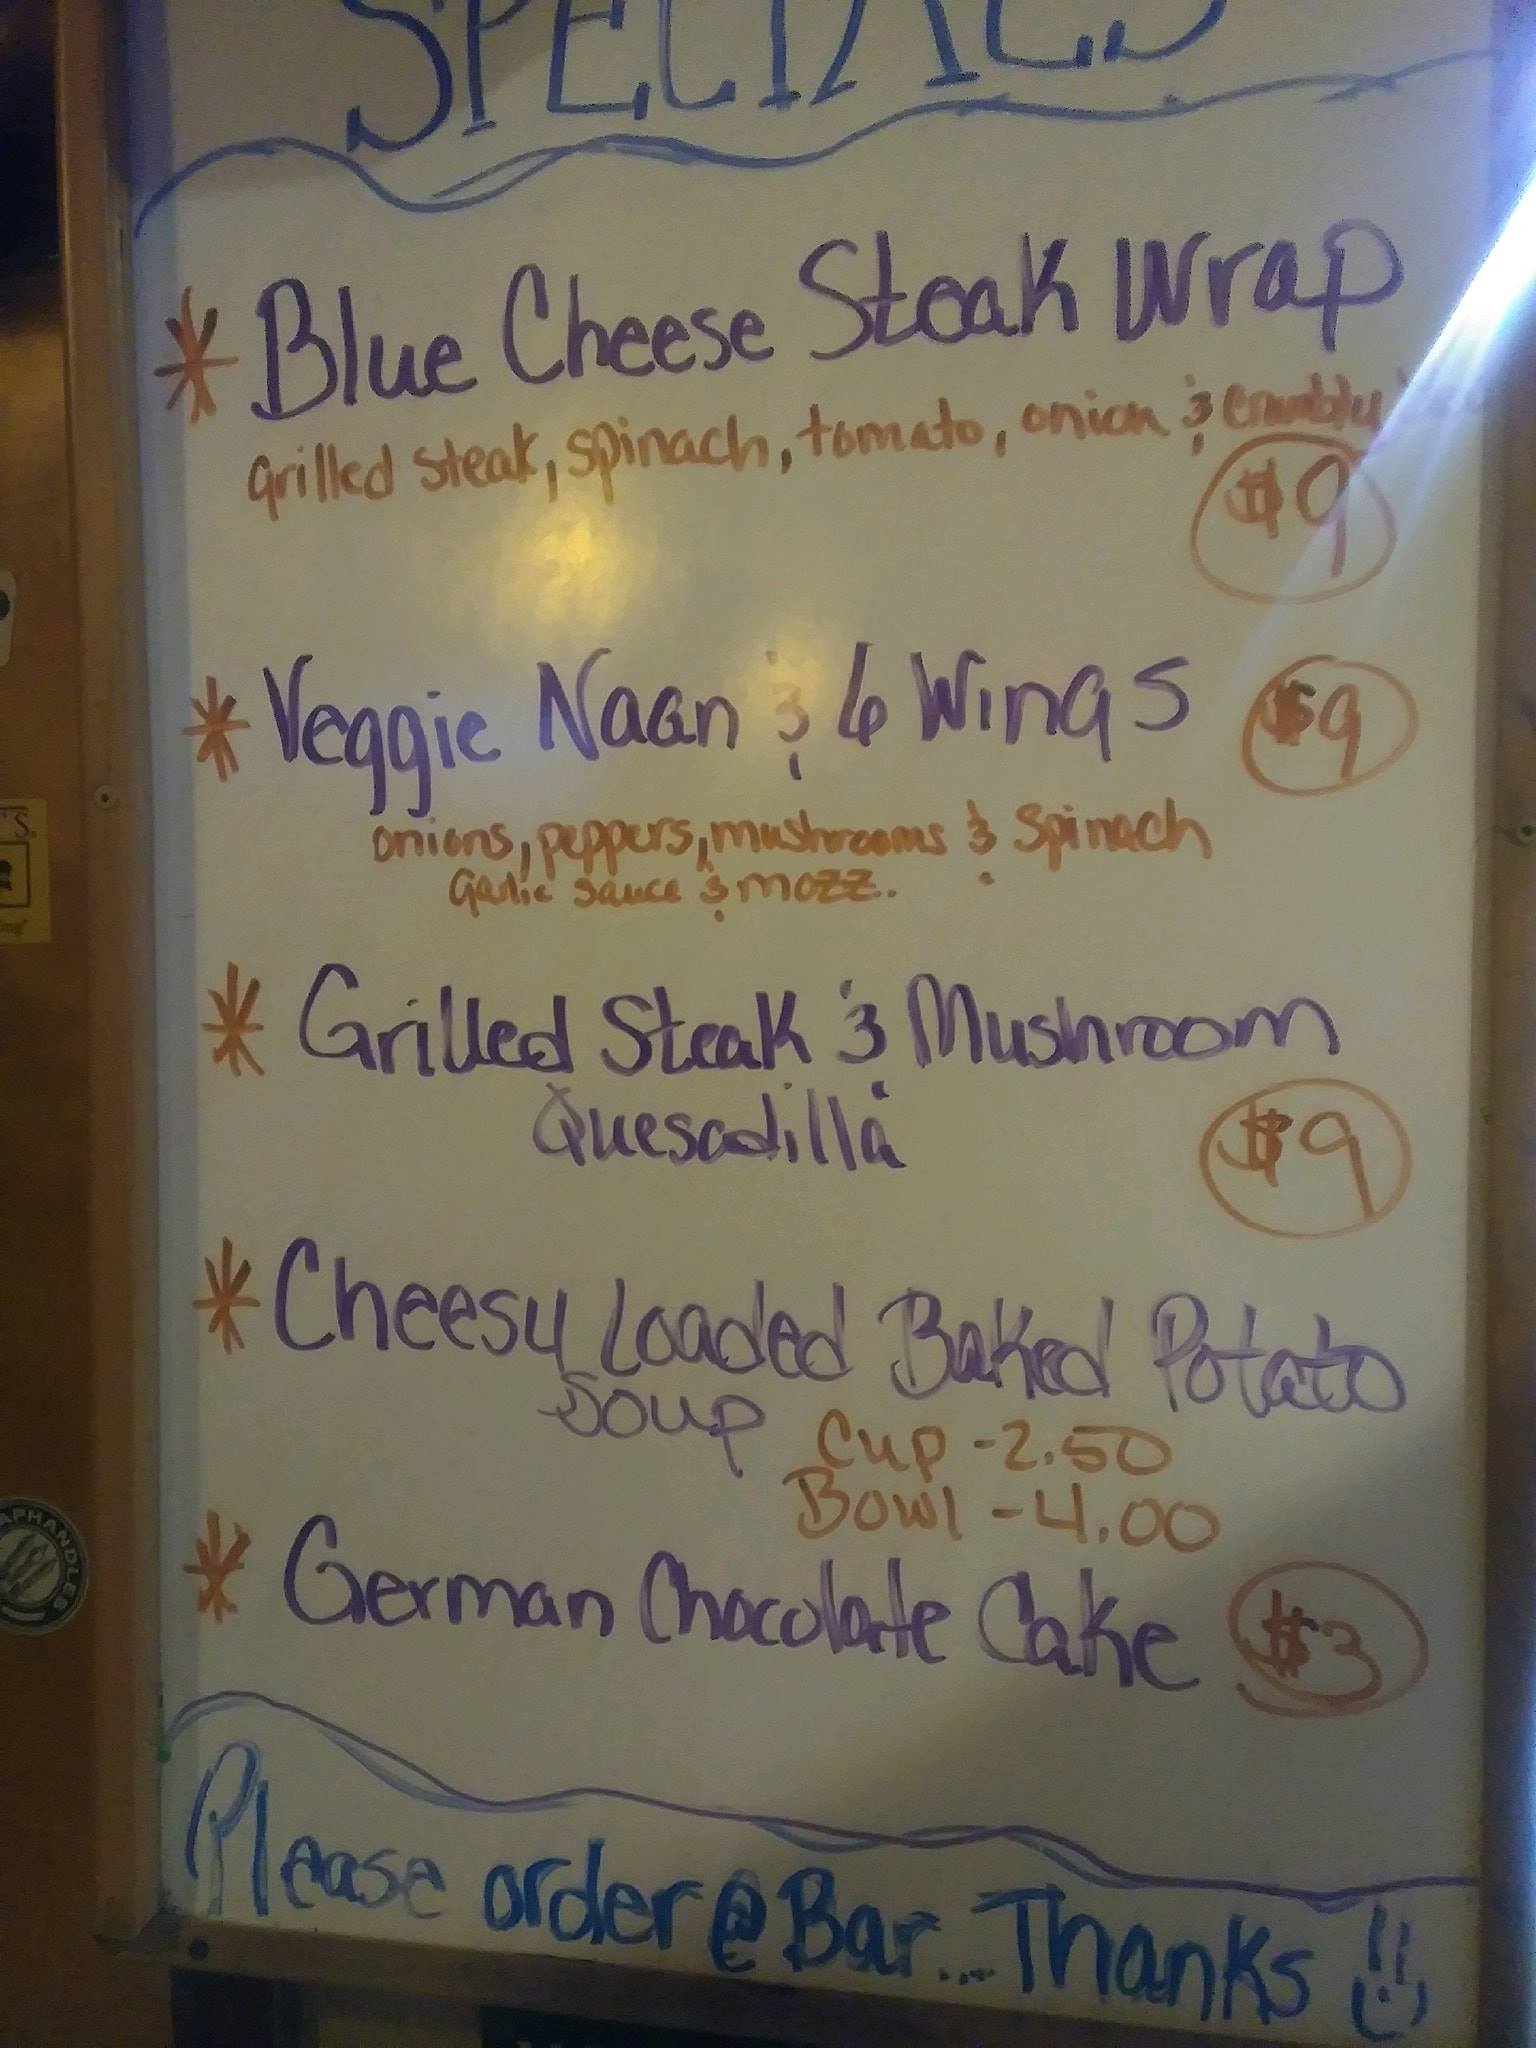 SPECIALS
* Blue Cheese Steak Wrap
Grilled steak, spinach, tomato, onion & crumbly
$9
* Veggie Naan & 6 Wings $9
onions, peppers, mushrooms & spinach
Garlic sauce & mozz.
* Grilled Steak & Mushroom
Quesadilla $9
* Cheesy Loaded Baked Potato
Soup Cup - 2.50
Bowl - 4.00
* German Chocolate Cake $3
Please order @ Bar... Thanks !!